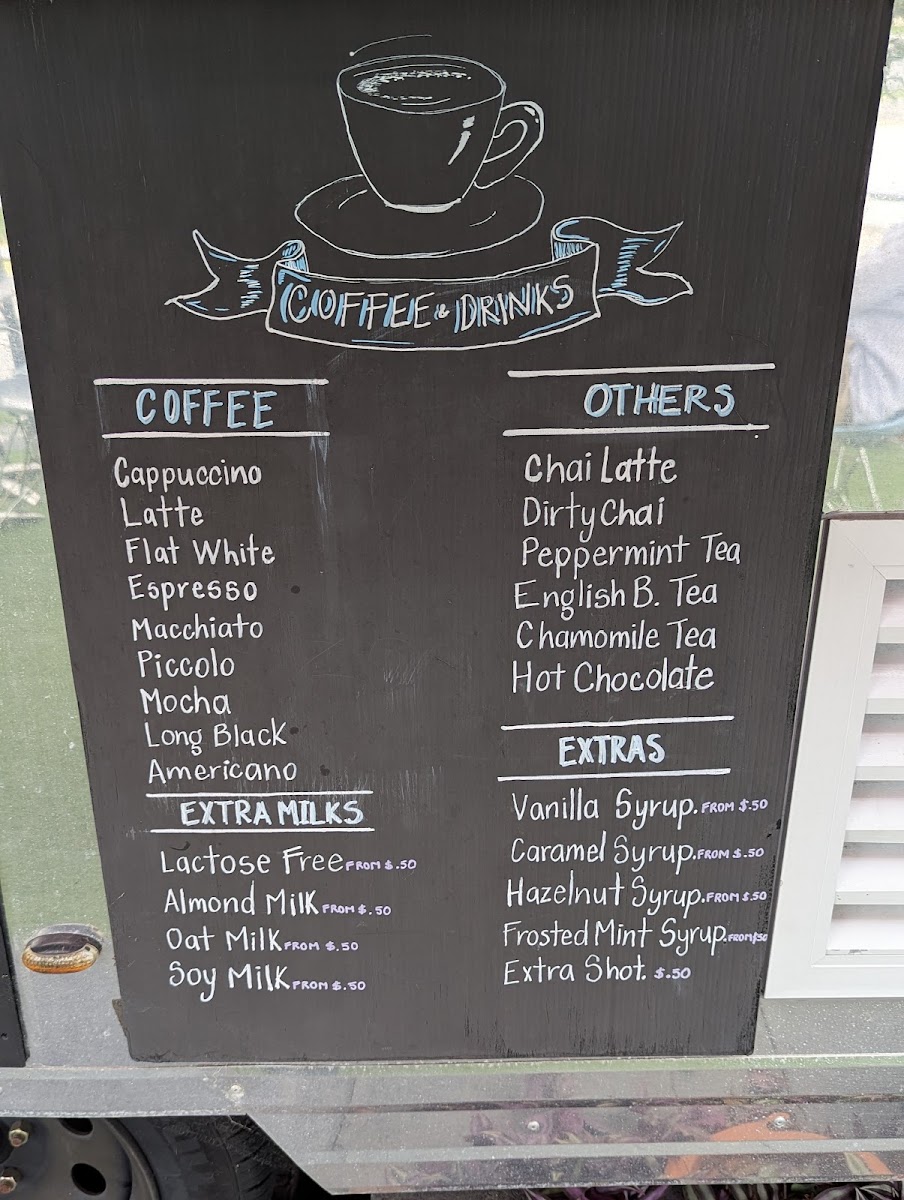 COFFEE & DRINKS
COFFEE
Cappuccino
Latte
Flat White
Espresso
Macchiato
Piccolo
Mocha
Long Black
Americano
EXTRA MILKS
Lactose Free FROM $.50
Almond Milk FROM $.50
Oat Milk FROM $.50
Soy Milk FROM $.50
OTHERS
Chai Latte
Dirty Chai
Peppermint Tea
English B. Tea
Chamomile Tea
Hot Chocolate
EXTRAS
Vanilla Syrup. FROM $.50
Caramel Syrup. FROM $.50
Hazelnut Syrup. FROM $.50
Frosted Mint Syrup. FROM $.50
Extra Shot. $.50